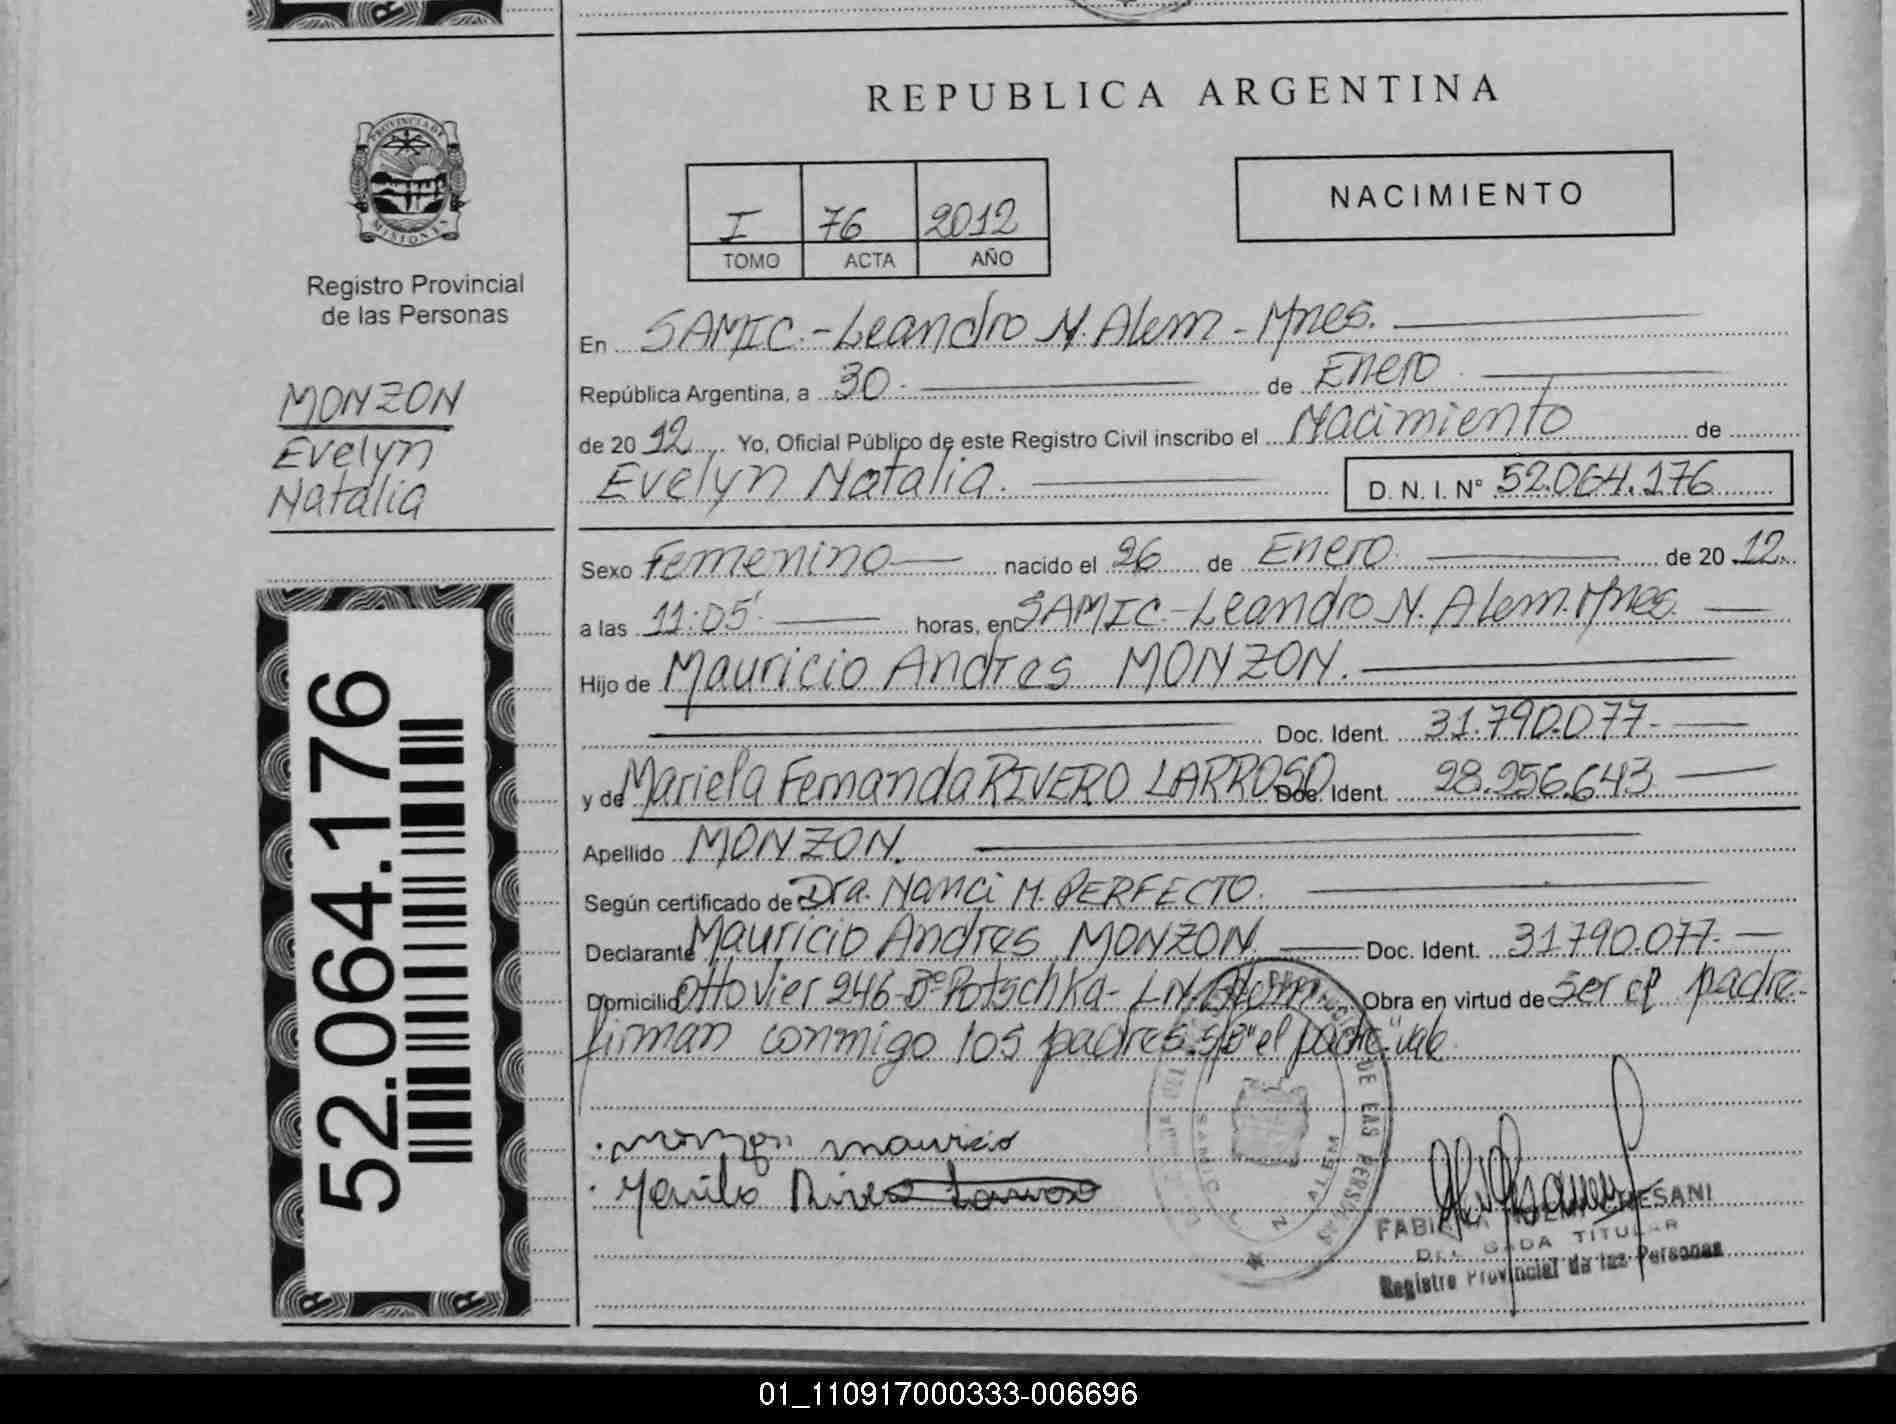 REPUBLICA ARGENTINA
PROVINCIA DE
MISIONES
Registro Provincial
de las Personas
MONZON
Evelyn
Natalia
52.064.176
I 76 2012
TOMO ACTA AÑO
NACIMIENTO
En SAMIC.-Leandro N. Alem-Mnes.
República Argentina, a 30 de Enero
de 2012 Yo, Oficial Público de este Registro Civil inscribo el Nacimiento de
Evelyn Natalia. D. N. I. N° 52.064.176
Sexo Femenino nacido el 26 de Enero de 2012.
a las 11:05' horas, en SAMIC-Leandro N. Alem. Mnes.
Hijo de Mauricio Andres MONZON.
Doc. Ident. 31.790.077
y de Mariela Fernanda RIVERO LARROSO Doc. Ident. 28.256.643
Apellido MONZON.
Según certificado de Dra. Nanci M. PERFECTO.
Declarante Mauricio Andres MONZON Doc. Ident. 31790.077
Domicilio Otto vier 246-Bº Potschka- L.N. Alem. Obra en virtud de ser el padre
firman conmigo los padres. s/r "el padre" vale
monzon mauricio
Rivero Larroso
DE LAS PERSONAS
SAMIC L. N. ALEM
FABI CHESANI
DELEGADA TITULAR
Registro Provincial de las Personas
01_110917000333-006696